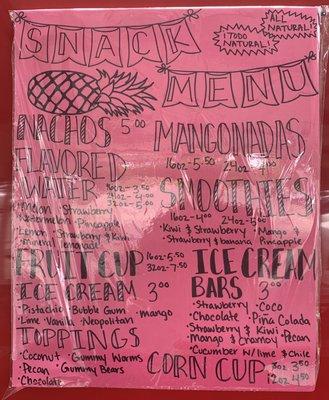 SNACK
MENU
ALL NATURAL!
¡TODO NATURAL!
NACHOS 5.00
FLAVORED WATER
16oz-3.50
24oz-4.00
32oz-5.00
·Melon ·Strawberry
·Watermelon ·Pineapple
·Lemon ·Strawberry & Kiwi
·mineral lemonade
FRUIT CUP 16oz-5.50
32oz-7.50
ICE CREAM 3.00
·Pistachio ·Bubble Gum ·mango
·Lime ·Vanilla ·Neopolitan
TOPPINGS
·Coconut ·Gummy Worms
·Pecan ·Gummy Bears
·Chocolate
MANGONADAS
16oz-5.50 24oz-
SMOOTHIES
16oz-4.00 24oz-
·Kiwi & Strawberry ·Mango &
Strawberry & banana Pineapple
ICE CREAM
BARS 3.00
·Strawberry ·Coco
·Chocolate ·Piña Colada
·Strawberry & Kiwi
·Mango & Chamoy ·Pecan
·Cucumber w/ lime & Chile
CORN CUP 8oz 3.50
12oz 4.50